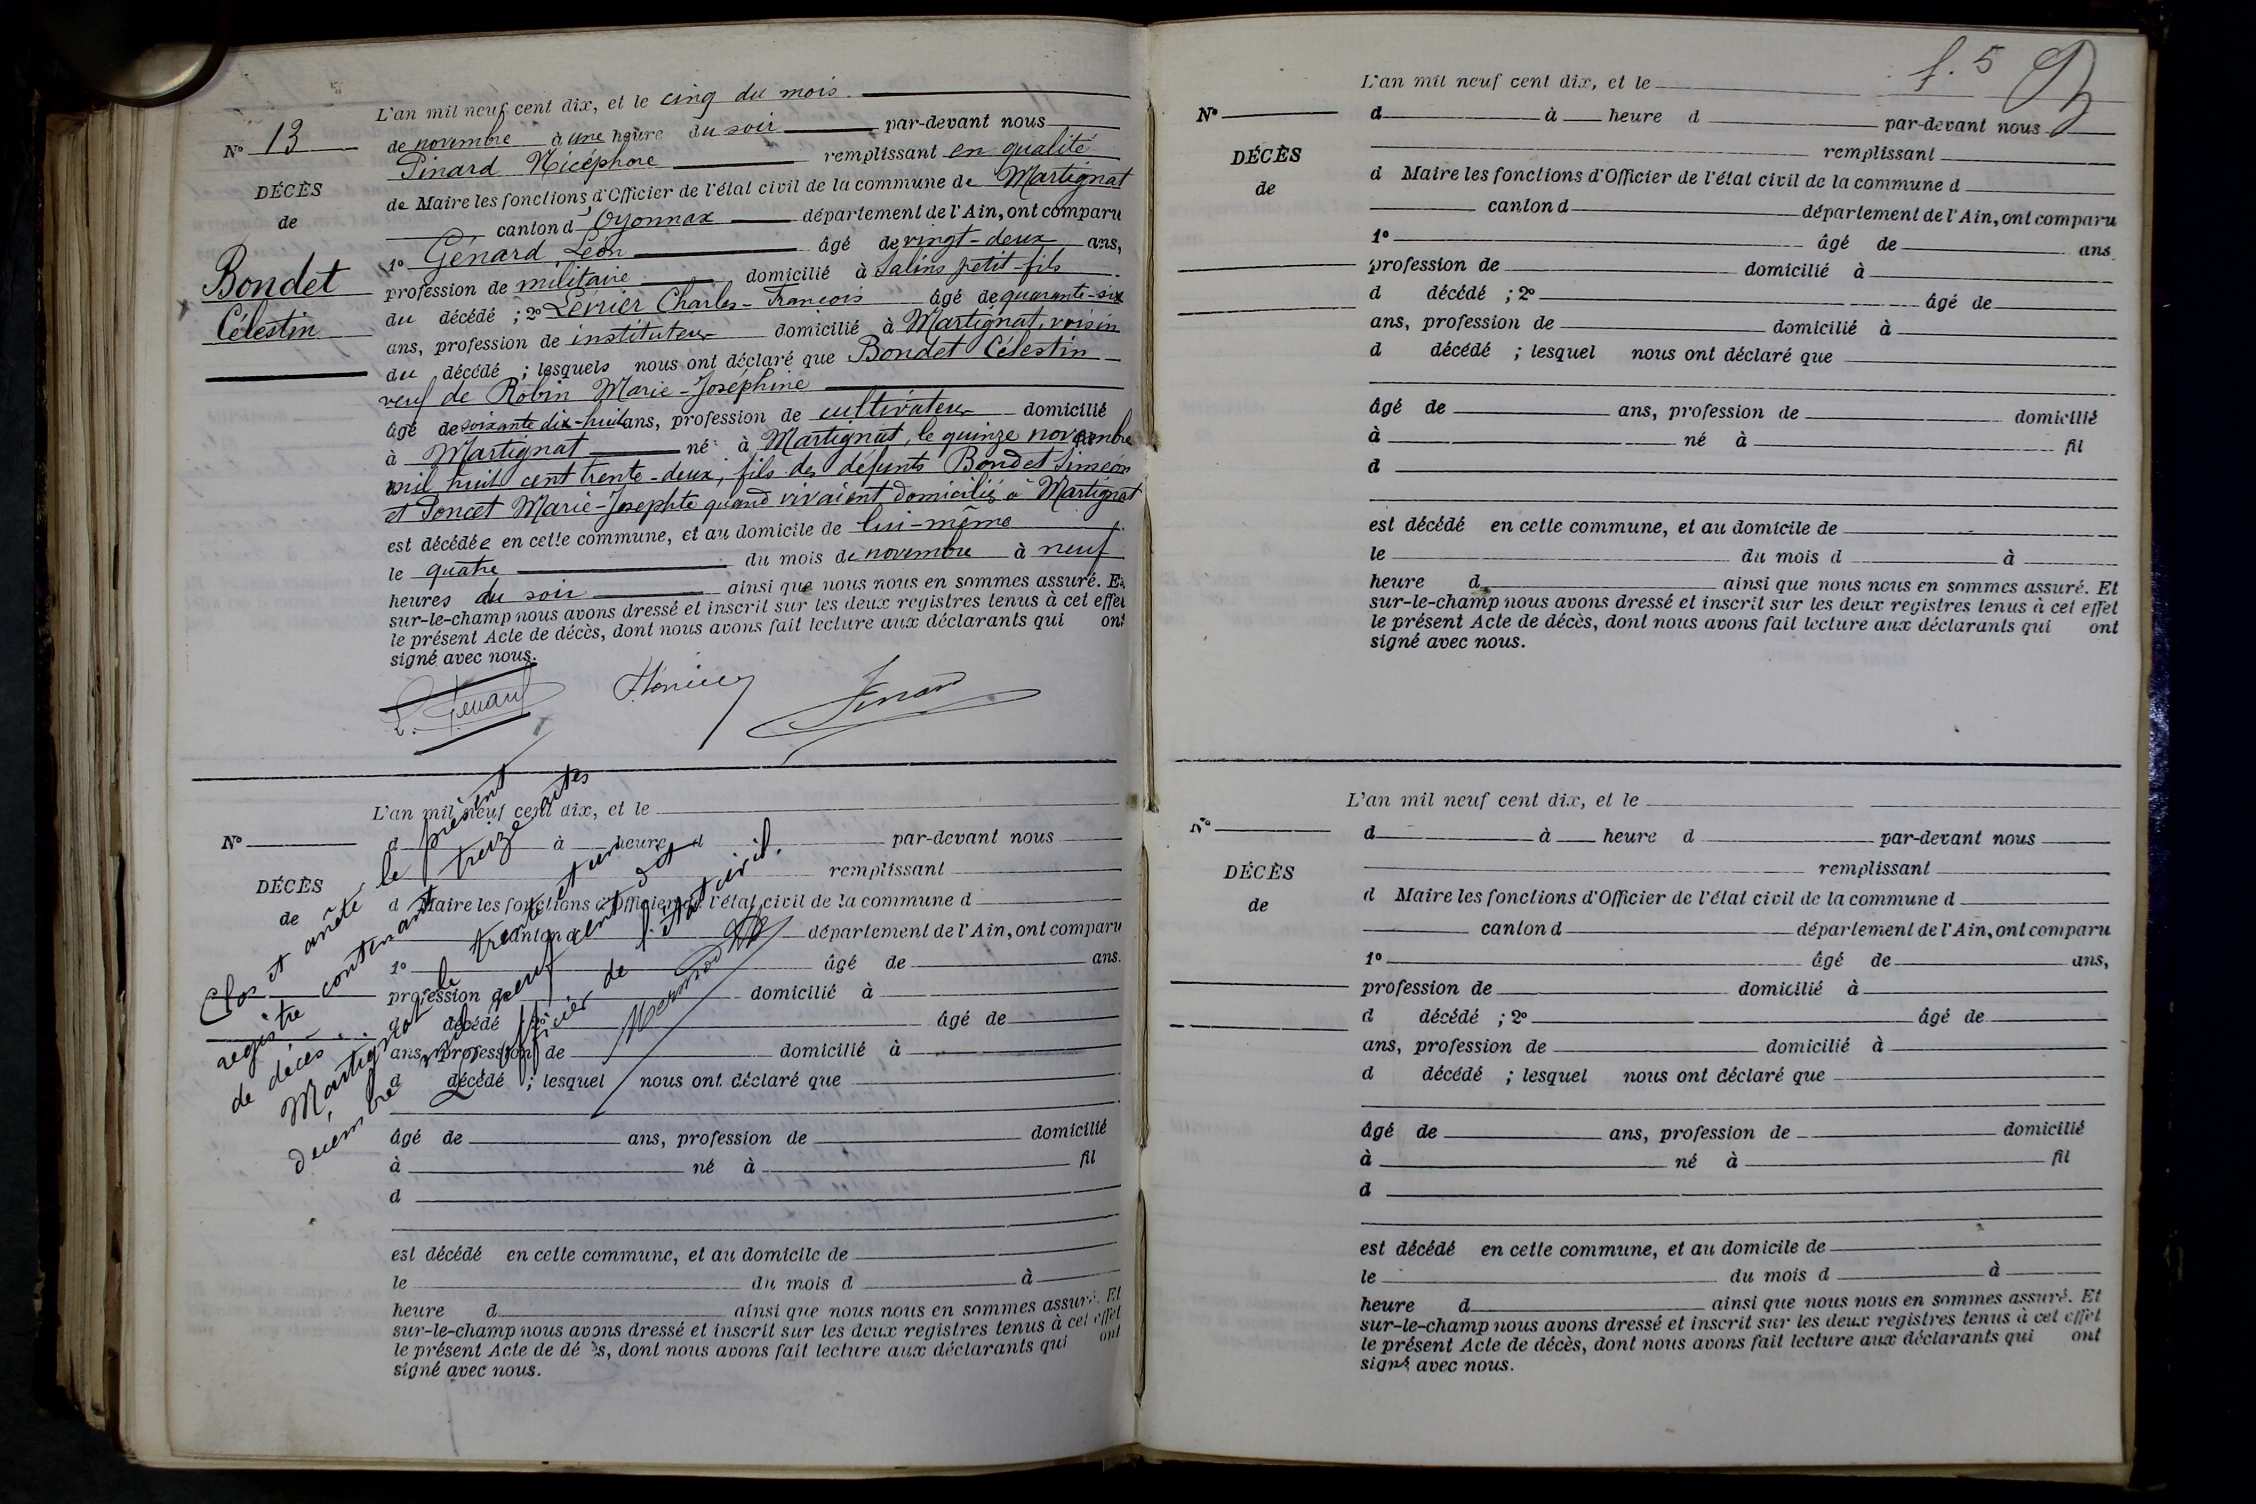 L'an mil neuf cent dix, et le cinq du mois
de novembre à une heure du soir par-devant nous
Pinard Nicéphore remplissant en qualité
de Maire les fonctions d'Officier de l'état civil de la commune de Martignat
canton d'Oyonnax département de l'Ain, ont comparu
1º Génard Léon âgé de vingt-deux ans,
profession de militaire domicilié à Salins petit-fils
du décédé ; 2º Lévrier Charles-François âgé de quarante-six
ans, profession de instituteur domicilié à Martignat, voisin
du décédé ; lesquels nous ont déclaré que Bondet Célestin
veuf de Robin Marie-Joséphine
âgé de soixante dix-huit ans, profession de cultivateur domicilié
à Martignat né à Martignat, le quinze novembre
mil huit cent trente-deux, fils des défunts Bondet Siméon
et Poncet Marie-Josephte quand vivaient domiciliés à Martignat
est décédée en cette commune, et au domicile de lui-même
le quatre du mois de novembre à neuf
heures du soir ainsi que nous nous en sommes assuré. Et
sur-le-champ nous avons dressé et inscrit sur les deux registres tenus à cet effet
le présent Acte de décès, dont nous avons fait lecture aux déclarants qui ont
signé avec nous.
Nº 13
DÉCÈS
de
Bondet
Célestin
L. Génard
Pinard
L'an mil neuf cent dix, et le
d à heure d par-devant nous
remplissant
d Maire les fonctions d'Officier de l'état civil de la commune d
canton d département de l'Ain, ont comparu
1º âgé de ans.
profession de domicilié à
d décédé ; 2º âgé de
ans, profession de domicilié à
d décédé ; lesquel nous ont déclaré que
âgé de ans, profession de domicilié
à né à fil
d
est décédé en cette commune, et au domicile de
le du mois d à
heure d ainsi que nous nous en sommes assuré. Et
sur-le-champ nous avons dressé et inscrit sur les deux registres tenus à cet effet
le présent Acte de décès, dont nous avons fait lecture aux déclarants qui ont
signé avec nous.
Nº
DÉCÈS
de
Clos et arrêté le présent
registre contenant treize actes
de décès.
Martignat, le trente et un
décembre mil neuf cent dix
L'officier de l'Etat civil.
f. 5
L'an mil neuf cent dix, et le
d à heure d par-devant nous
remplissant
d Maire les fonctions d'Officier de l'état civil de la commune d
canton d département de l'Ain, ont comparu
1º âgé de ans
profession de domicilié à
d décédé ; 2º âgé de
ans, profession de domicilié à
d décédé ; lesquel nous ont déclaré que
âgé de ans, profession de domicilié
à né à fil
d
est décédé en cette commune, et au domicile de
le du mois d à
heure d ainsi que nous nous en sommes assuré. Et
sur-le-champ nous avons dressé et inscrit sur les deux registres tenus à cet effet
le présent Acte de décès, dont nous avons fait lecture aux déclarants qui ont
signé avec nous.
Nº
DÉCÈS
de
L'an mil neuf cent dix, et le
d à heure d par-devant nous
remplissant
d Maire les fonctions d'Officier de l'état civil de la commune d
canton d département de l'Ain, ont comparu
1º âgé de ans,
profession de domicilié à
d décédé ; 2º âgé de
ans, profession de domicilié à
d décédé ; lesquel nous ont déclaré que
âgé de ans, profession de domicilié
à né à fil
d
est décédé en cette commune, et au domicile de
le du mois d à
heure d ainsi que nous nous en sommes assuré. Et
sur-le-champ nous avons dressé et inscrit sur les deux registres tenus à cet effet
le présent Acte de décès, dont nous avons fait lecture aux déclarants qui ont
signé avec nous.
Nº
DÉCÈS
de